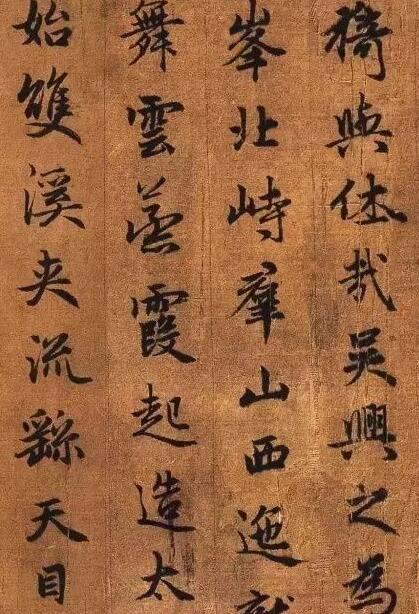 猗與休哉吳興之為
峯北峙羣山西迤
舞雲蒸霞起造太
始雙溪夾流繇天目